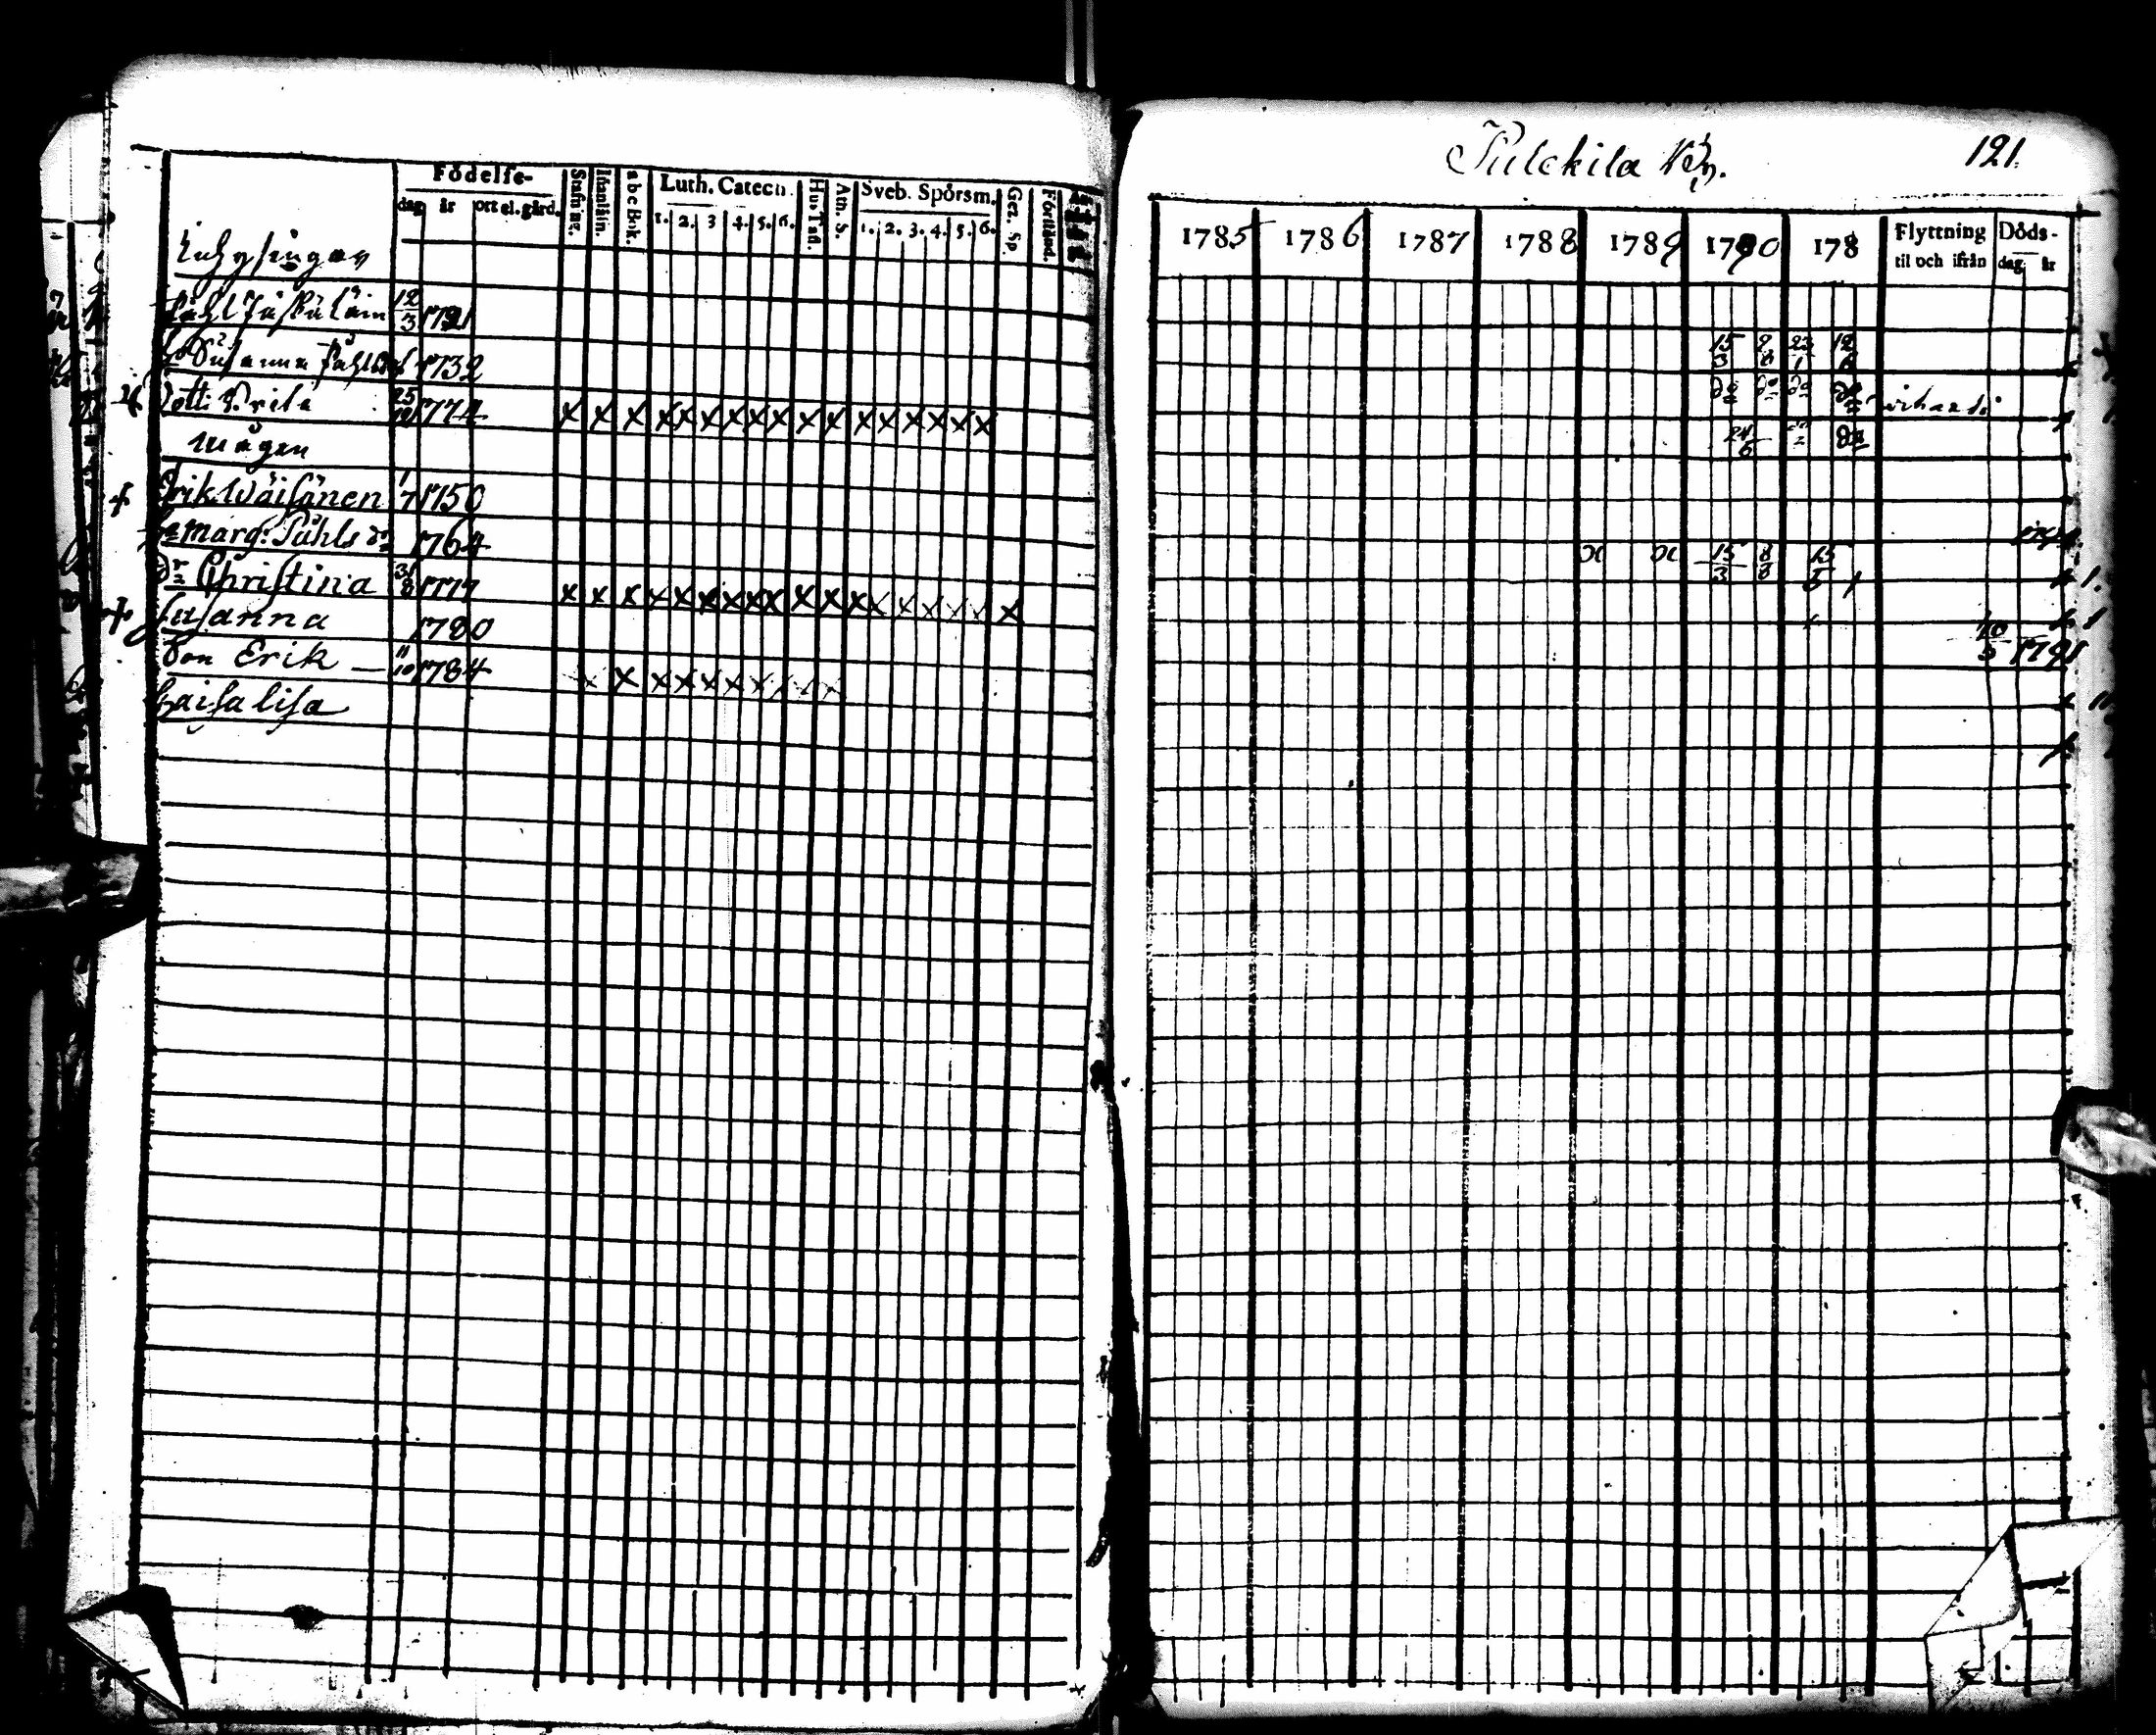 Pulckila
121.
Födelse-
Stafning.
Innanläsn.
abc Bok.
Luth. Catech.
Hus Tafl.
Ath. S.
Sveb. Spörsm.
Gez. Sp.
Förstånd.
dag år ort el. gård.
1. 2. 3 4. 5. 6.
1. 2. 3. 4. 5. 6.
1785 1786 1787 1788 1789 1790 178
Flyttning til och ifrån
Döds- dag år
Inhysingar
12/3 1721
15/3 8/8 23/1 12/6
H. Susanna Påhlsd. 1732
do do do do
Dott. Brita 25/12 1774 x x x x x x x x x x x x x x x x x
24/5
mågen
Erik Wäisänen 1/7 1750
H marg: Påhls dr 1764
x x 15/3 8/8 15/5 1
Dr Christina 31/8 1777 x x x x x x x x x x x x x x x x x x
Susanna 1780
10/5 1791
Son Erik 11/10 1784 x x x x x x x
Caisa Lisa